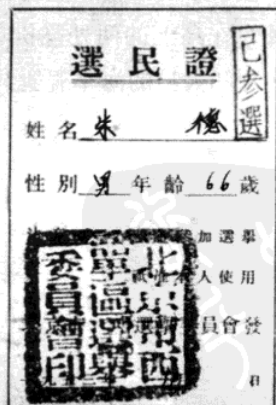 選民證
已參選
姓名 朱 德
性別 男 年齡 66 歲
加選舉
人使用
員會發
日
北京市西
單區選舉
委員會印